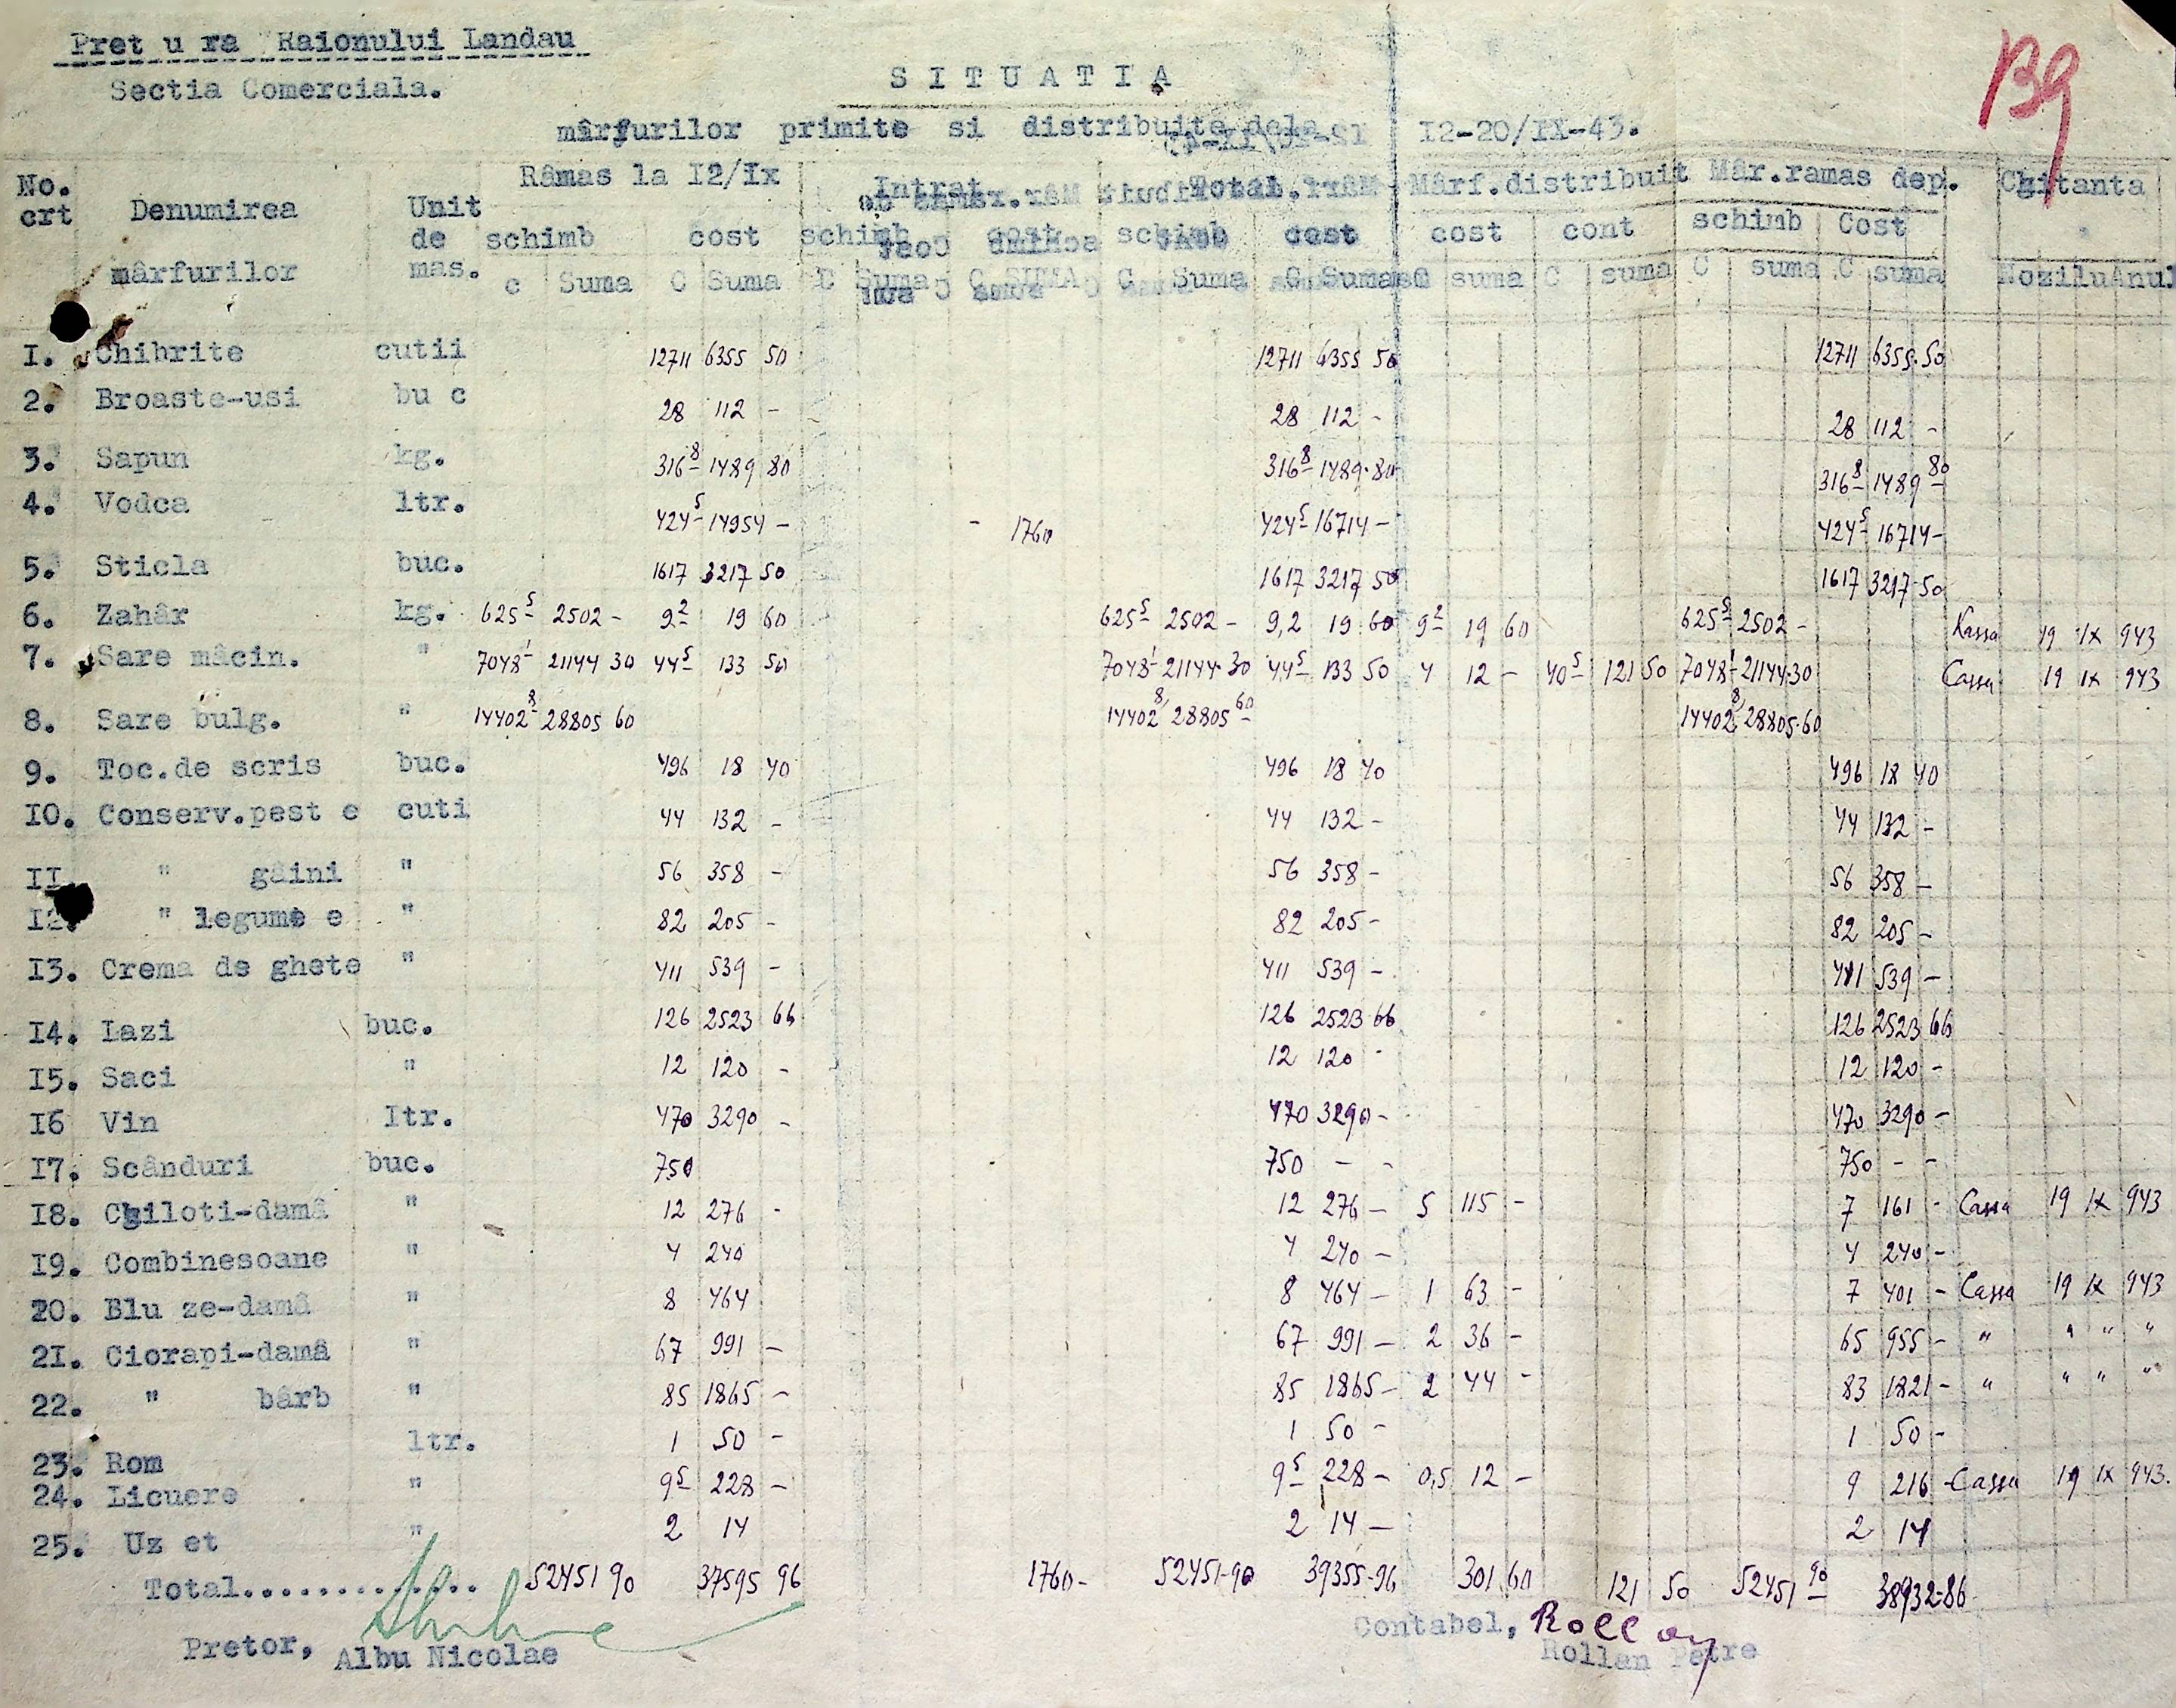 Pret u ra Raionului Landau
Sectia Comerciala.
139
S I T U A T I A
mârfurilor primite si distribuite dela I2-20/IX-43.
No. crt Denumirea mârfurilor Unit de mas. Râmas la I2/Ix Intrat Total Mârf.distribuit Mâr.ramas dep. Chitanta
schimb cost schimb cost schimb cost cost cont schimb Cost
c Suma C Suma C Suma C SUMA C Suma C Suma C suma C suma C suma C suma No ziluAnul
I. Chibrite cutii 12711 6355 50 12711 6355 50 12711 6355.50
2. Broaste-usi bu c 28 112 - 28 112 - 28 112 -
3. Sapun kg. 316 8 1489 80 316 8 1489.80 316 8 1489 80
4. Vodca ltr. 424 5 14954 - - 1760 424 5 16714 - 424 5 16714-
5. Sticla buc. 1617 3217 50 1617 3217 50 1617 3217.50
6. Zahâr kg. 625 5 2502 - 9 2 19 60 625 5 2502 - 9,2 19.60 9 2 19 60 625 5 2502 - Kassa 19 IX 943
7. Sare mâcin. " 7048 1 21144 30 44 5 133 50 7048 1 21144.30 44 5 133 50 4 12 - 40 5 121 50 7048 1 21144.30 Cassa 19 IX 943
8. Sare bulg. " 14402 8 28805 60 14402 8 28805 60 14402 8 28805.60
9. Toc.de scris buc. 496 18 40 496 18 40 496 18 40
IO. Conserv.pest e cuti 44 132 - 44 132 - 44 132 -
II. " gâini " 56 358 - 56 358 - 56 358 -
I2. " legume e " 82 205 - 82 205 - 82 205 -
I3. Crema de ghete " 411 539 - 411 539 - 411 539 -
I4. Lazi buc. 126 2523 66 126 2523 66 126 2523 66
I5. Saci " 12 120 - 12 120 - 12 120 -
I6 Vin Itr. 470 3290 - 470 3290 - 470 3290 -
I7. Scânduri buc. 750 750 - - 750 - -
I8. Chiloti-damâ " 12 276 - 12 276 - 5 115 - 7 161 - Cassa 19 IX 943
I9. Combinesoane " 4 240 4 240 - 4 240 -
20. Blu ze-damâ " 8 464 8 464 - 1 63 - 7 401 - Cassa 19 IX 943
2I. Ciorapi-damâ " 67 991 - 67 991 - 2 36 - 65 955 - " " " "
22. " bârb " 85 1865 - 85 1865 - 2 44 - 83 1821 - " " " "
23. Rom ltr. 1 50 - 1 50 - 1 50 -
24. Licuere " 9 5 228 - 9 5 228 - 0,5 12 - 9 216 - Cassa 19 IX 943.
25. Uz et " 2 14 2 14 - 2 14
Total.............. 52451 90 37595 96 1760- 52451-90 39355-96 301 60 121 50 52451 90 38932-86
Pretor, Albu Nicolae
Contabel, Rollan
Rollan Petre